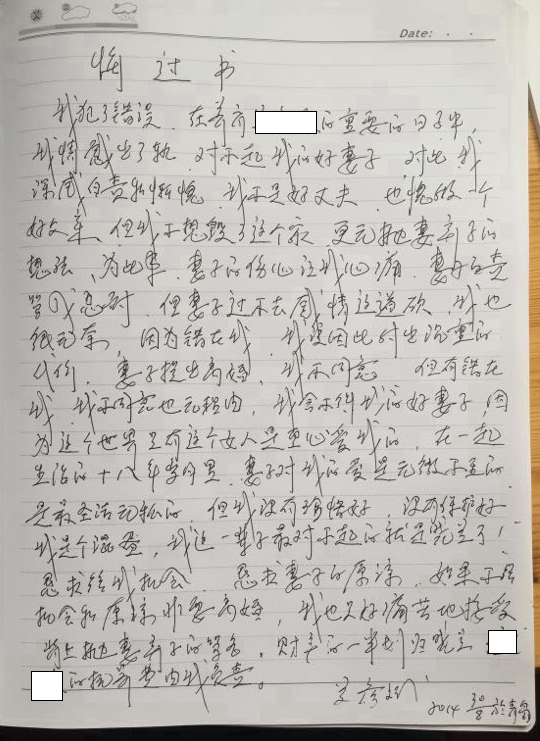 Date:
悔过书
我犯了错误，在養育的重要的日子中，
我情感出了轨，对不起我的好妻子，对此我
深感自责和惭愧，我不是好丈夫，也愧做一个
好父亲，但我不想毁了这个家，更无抛妻弃子的
想法，为此事，妻子的伤心让我心痛，妻
，但妻子过不去感情这道砍，我也
很无奈，因为错在我，我应因此付出沉重的
代价，妻子提出离婚，我不同意，但有错在
我，我不同意也无理由，我舍不得我的好妻子，因
为这个世界只有这个女人是真心爱我的，在一起
生活的十八年岁月里，妻子对我的爱是无微不至的
是最圣洁无私的，但我没有珍惜好，没有保护好
我是个混蛋，我这一辈子最对不起的就是了！
恳求给我机会，恳求妻子的原谅，如果不给
机会和原谅非要离婚，我也只好痛苦地接受
背上抛妻弃子的罪名，财产的一半划归
的抚养费由我负责。
2014 30/8 於青岛